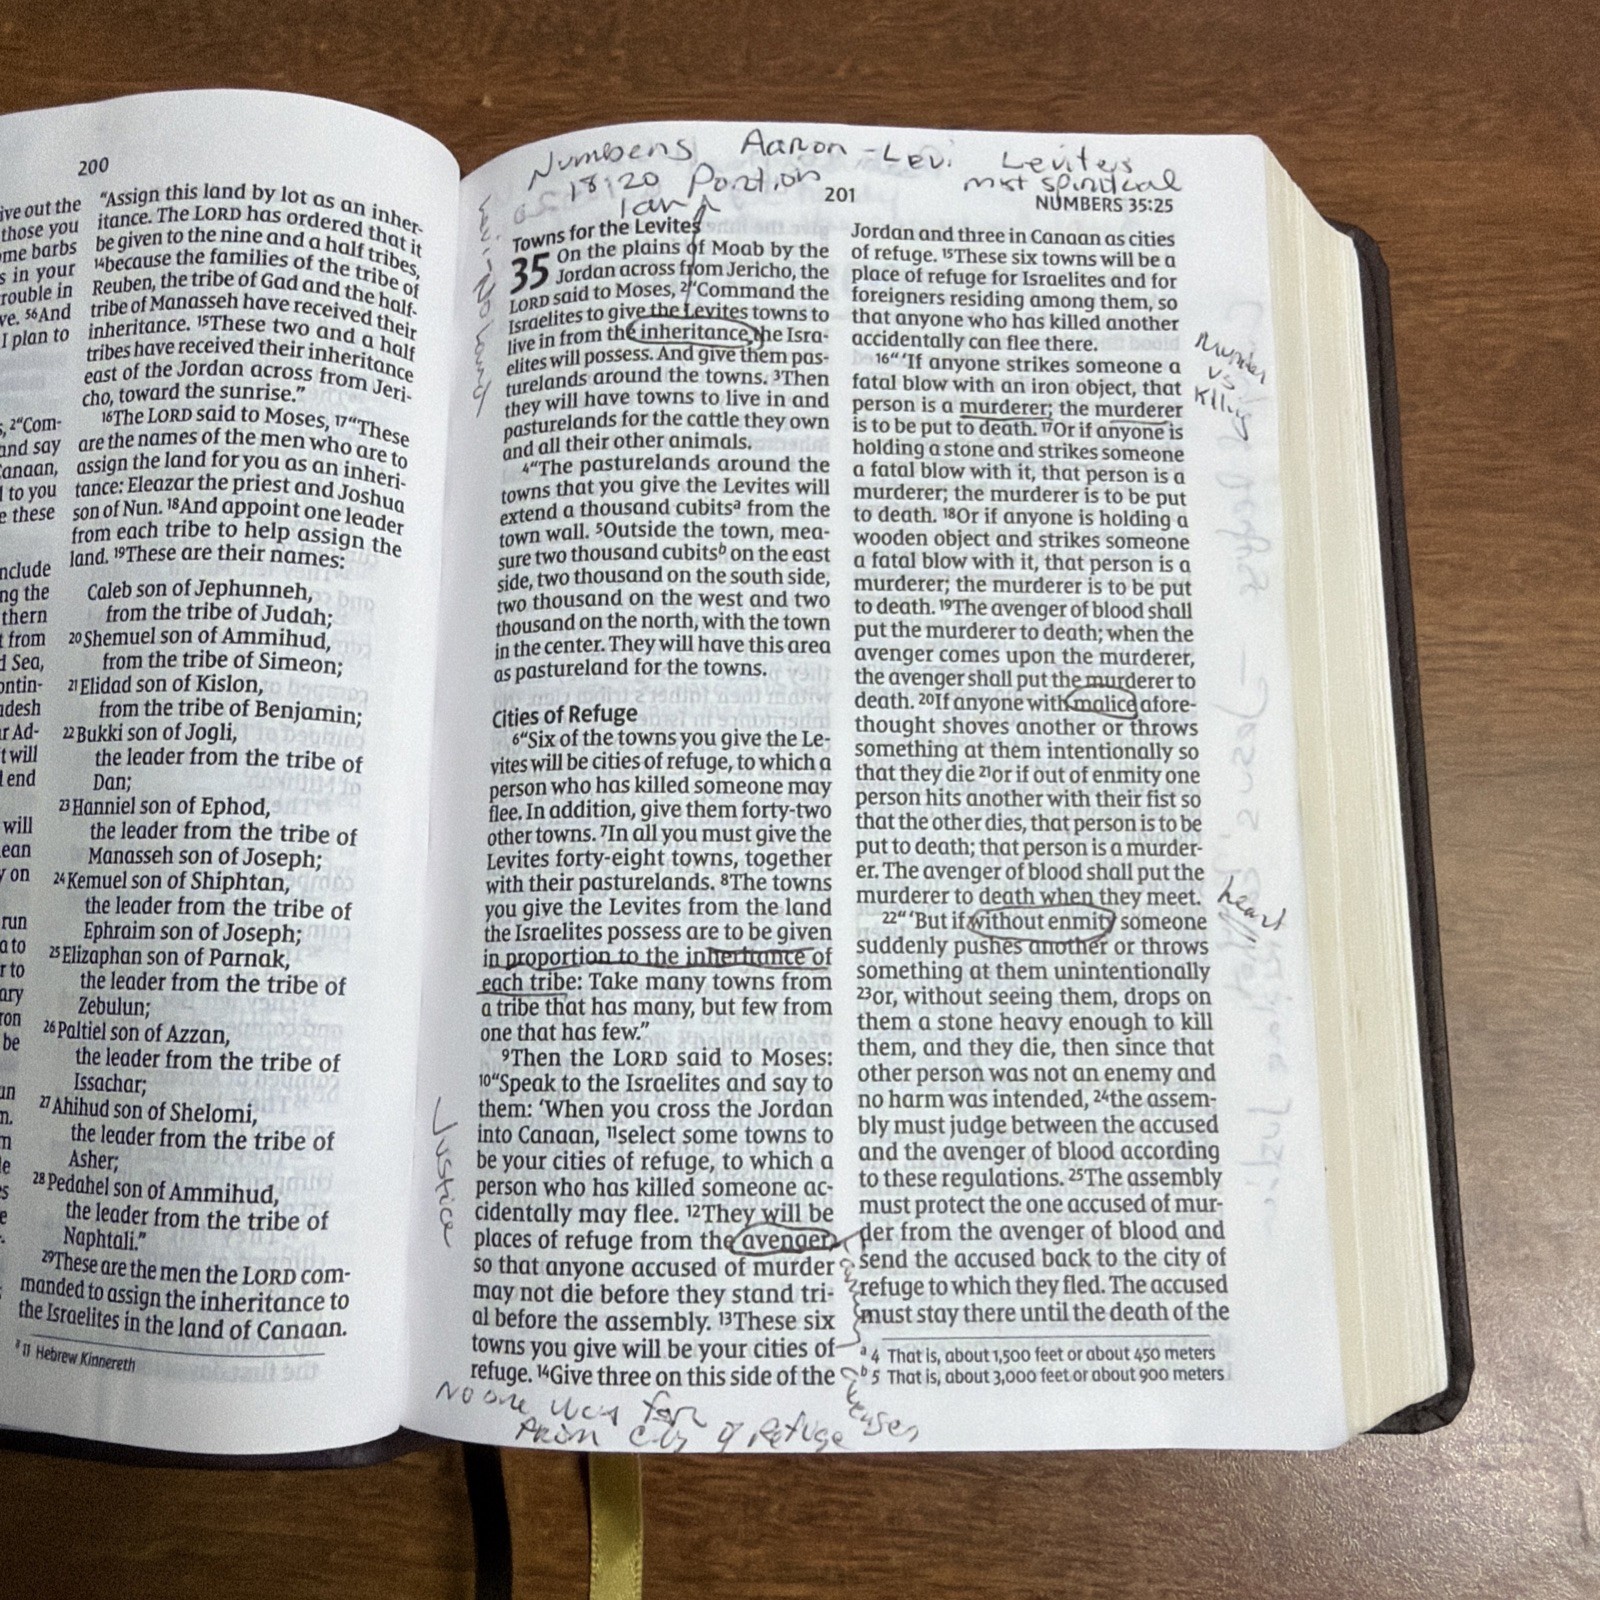 200
ive out the
those you
me barbs
s in your
rouble in
ve. ⁵⁶And
I plan to
s, ²“Com-
and say
Canaan,
l to you
e these
nclude
ng the
thern
t from
d Sea,
ontin-
adesh
r Ad-
t will
l end
will
ean
y on
run
a to
r to
ary
ron
be
un
n.
m
le
es
e
“Assign this land by lot as an inher-
itance. The LORD has ordered that it
be given to the nine and a half tribes,
¹⁴because the families of the tribe of
Reuben, the tribe of Gad and the half-
tribe of Manasseh have received their
inheritance. ¹⁵These two and a half
tribes have received their inheritance
east of the Jordan across from Jeri-
cho, toward the sunrise.”
¹⁶The LORD said to Moses, ¹⁷“These
are the names of the men who are to
assign the land for you as an inheri-
tance: Eleazar the priest and Joshua
son of Nun. ¹⁸And appoint one leader
from each tribe to help assign the
land. ¹⁹These are their names:
Caleb son of Jephunneh,
from the tribe of Judah;
²⁰Shemuel son of Ammihud,
from the tribe of Simeon;
²¹Elidad son of Kislon,
from the tribe of Benjamin;
²²Bukki son of Jogli,
the leader from the tribe of
Dan;
²³Hanniel son of Ephod,
the leader from the tribe of
Manasseh son of Joseph;
²⁴Kemuel son of Shiphtan,
the leader from the tribe of
Ephraim son of Joseph;
²⁵Elizaphan son of Parnak,
the leader from the tribe of
Zebulun;
²⁶Paltiel son of Azzan,
the leader from the tribe of
Issachar;
²⁷Ahihud son of Shelomi,
the leader from the tribe of
Asher;
²⁸Pedahel son of Ammihud,
the leader from the tribe of
Naphtali.”
²⁹These are the men the LORD com-
manded to assign the inheritance to
the Israelites in the land of Canaan.
ᵃ 11 Hebrew Kinnereth
Numbers Aaron - Levi Levites
18:20 Portion most spiritual
I am
201
NUMBERS 35:25
Levi: No Land
Towns for the Levites
35 On the plains of Moab by the
Jordan across from Jericho, the
LORD said to Moses, ²“Command the
Israelites to give the Levites towns to
live in from the inheritance the Isra-
elites will possess. And give them pas-
turelands around the towns. ³Then
they will have towns to live in and
pasturelands for the cattle they own
and all their other animals.
⁴“The pasturelands around the
towns that you give the Levites will
extend a thousand cubitsᵃ from the
town wall. ⁵Outside the town, mea-
sure two thousand cubitsᵇ on the east
side, two thousand on the south side,
two thousand on the west and two
thousand on the north, with the town
in the center. They will have this area
as pastureland for the towns.
Cities of Refuge
⁶“Six of the towns you give the Le-
vites will be cities of refuge, to which a
person who has killed someone may
flee. In addition, give them forty-two
other towns. ⁷In all you must give the
Levites forty-eight towns, together
with their pasturelands. ⁸The towns
you give the Levites from the land
the Israelites possess are to be given
in proportion to the inheritance of
each tribe: Take many towns from
a tribe that has many, but few from
one that has few.”
⁹Then the LORD said to Moses:
¹⁰“Speak to the Israelites and say to
them: ‘When you cross the Jordan
into Canaan, ¹¹select some towns to
be your cities of refuge, to which a
person who has killed someone ac-
cidentally may flee. ¹²They will be
places of refuge from the avenger,
so that anyone accused of murder
may not die before they stand tri-
al before the assembly. ¹³These six
towns you give will be your cities of
refuge. ¹⁴Give three on this side of the
Justice
No one was far
from City of Refuge
Jordan and three in Canaan as cities
of refuge. ¹⁵These six towns will be a
place of refuge for Israelites and for
foreigners residing among them, so
that anyone who has killed another
accidentally can flee there.
¹⁶“‘If anyone strikes someone a
fatal blow with an iron object, that
person is a murderer; the murderer
is to be put to death. ¹⁷Or if anyone is
holding a stone and strikes someone
a fatal blow with it, that person is a
murderer; the murderer is to be put
to death. ¹⁸Or if anyone is holding a
wooden object and strikes someone
a fatal blow with it, that person is a
murderer; the murderer is to be put
to death. ¹⁹The avenger of blood shall
put the murderer to death; when the
avenger comes upon the murderer,
the avenger shall put the murderer to
death. ²⁰If anyone with malice afore-
thought shoves another or throws
something at them intentionally so
that they die ²¹or if out of enmity one
person hits another with their fist so
that the other dies, that person is to be
put to death; that person is a murder-
er. The avenger of blood shall put the
murderer to death when they meet.
²²“‘But if without enmity someone
suddenly pushes another or throws
something at them unintentionally
²³or, without seeing them, drops on
them a stone heavy enough to kill
them, and they die, then since that
other person was not an enemy and
no harm was intended, ²⁴the assem-
bly must judge between the accused
and the avenger of blood according
to these regulations. ²⁵The assembly
must protect the one accused of mur-
der from the avenger of blood and
send the accused back to the city of
refuge to which they fled. The accused
must stay there until the death of the
ᵃ 4 That is, about 1,500 feet or about 450 meters
ᵇ 5 That is, about 3,000 feet or about 900 meters
Murder
vs
Killing
heart